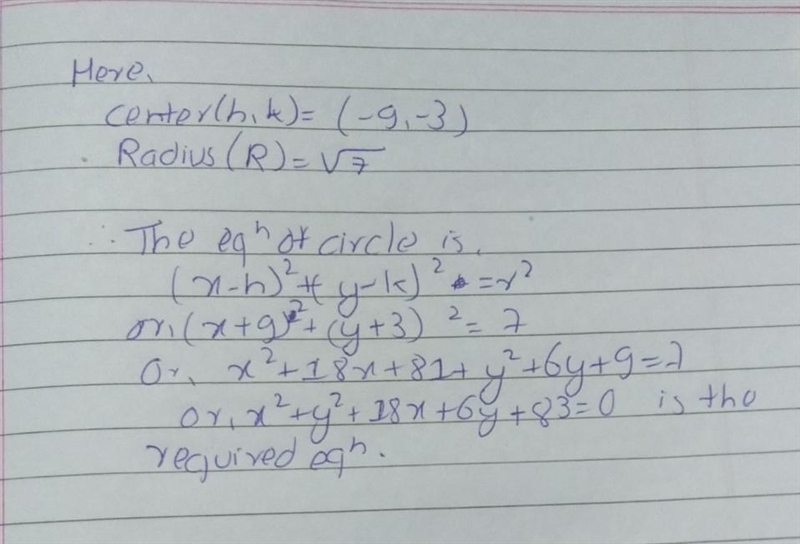 Here,
center(h,k)= (-9,-3)
Radius(R)=√7
∴ The eqⁿ of circle is,
(x-h)²+(y-k)² =r²
or,(x+9)²+(y+3)²= 7
Or, x²+18x+81+y²+6y+9=7
or, x²+y²+18x+6y+83=0 is the
required eqⁿ.